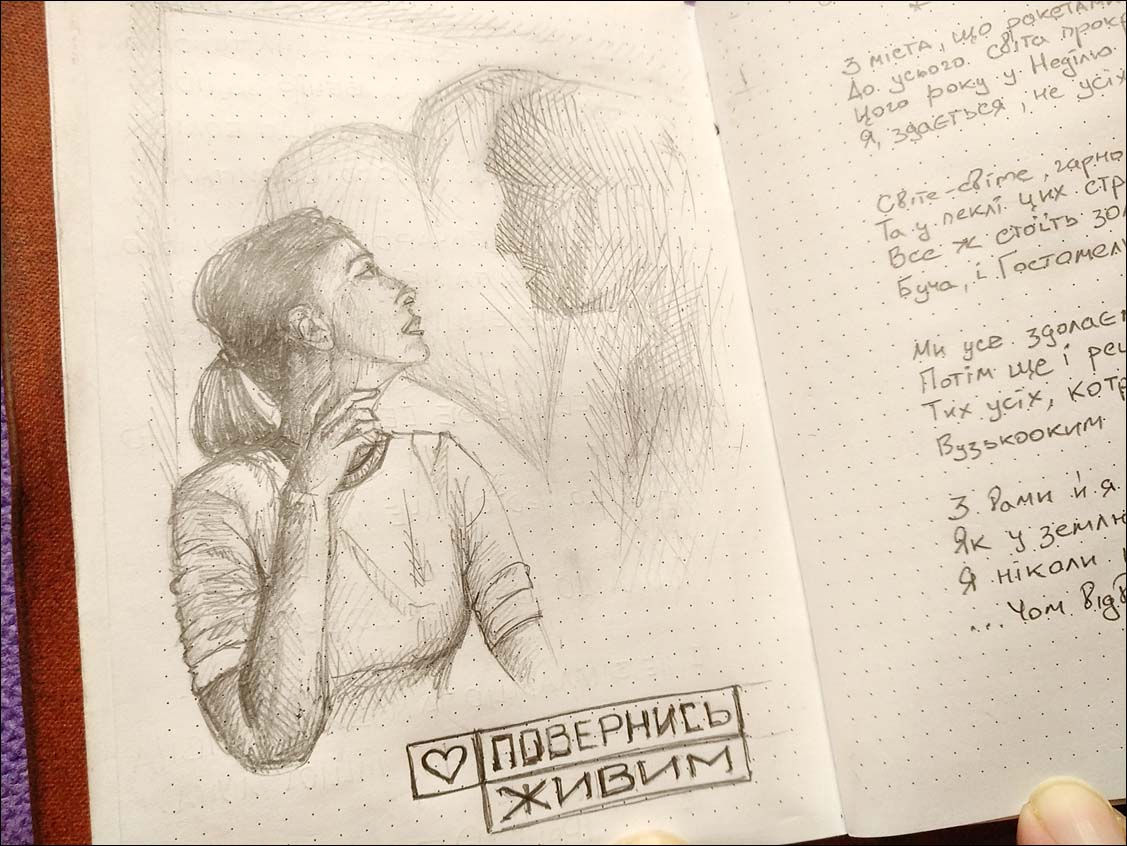 ПОВЕРНИСЬ
ЖИВИМ
З міста, що ракетами
До усього світа
Цього року у Неділю
Я, здається, не усіх
Світе-світе, гарно
Та у пеклі цих
Все ж стоїть
Буча, і Гостомель
Ми усе здолаєм
Потім ще і
Тих усіх,
Вузькооким
З Вами й я
Як у землю
Я ніколи
...Чом